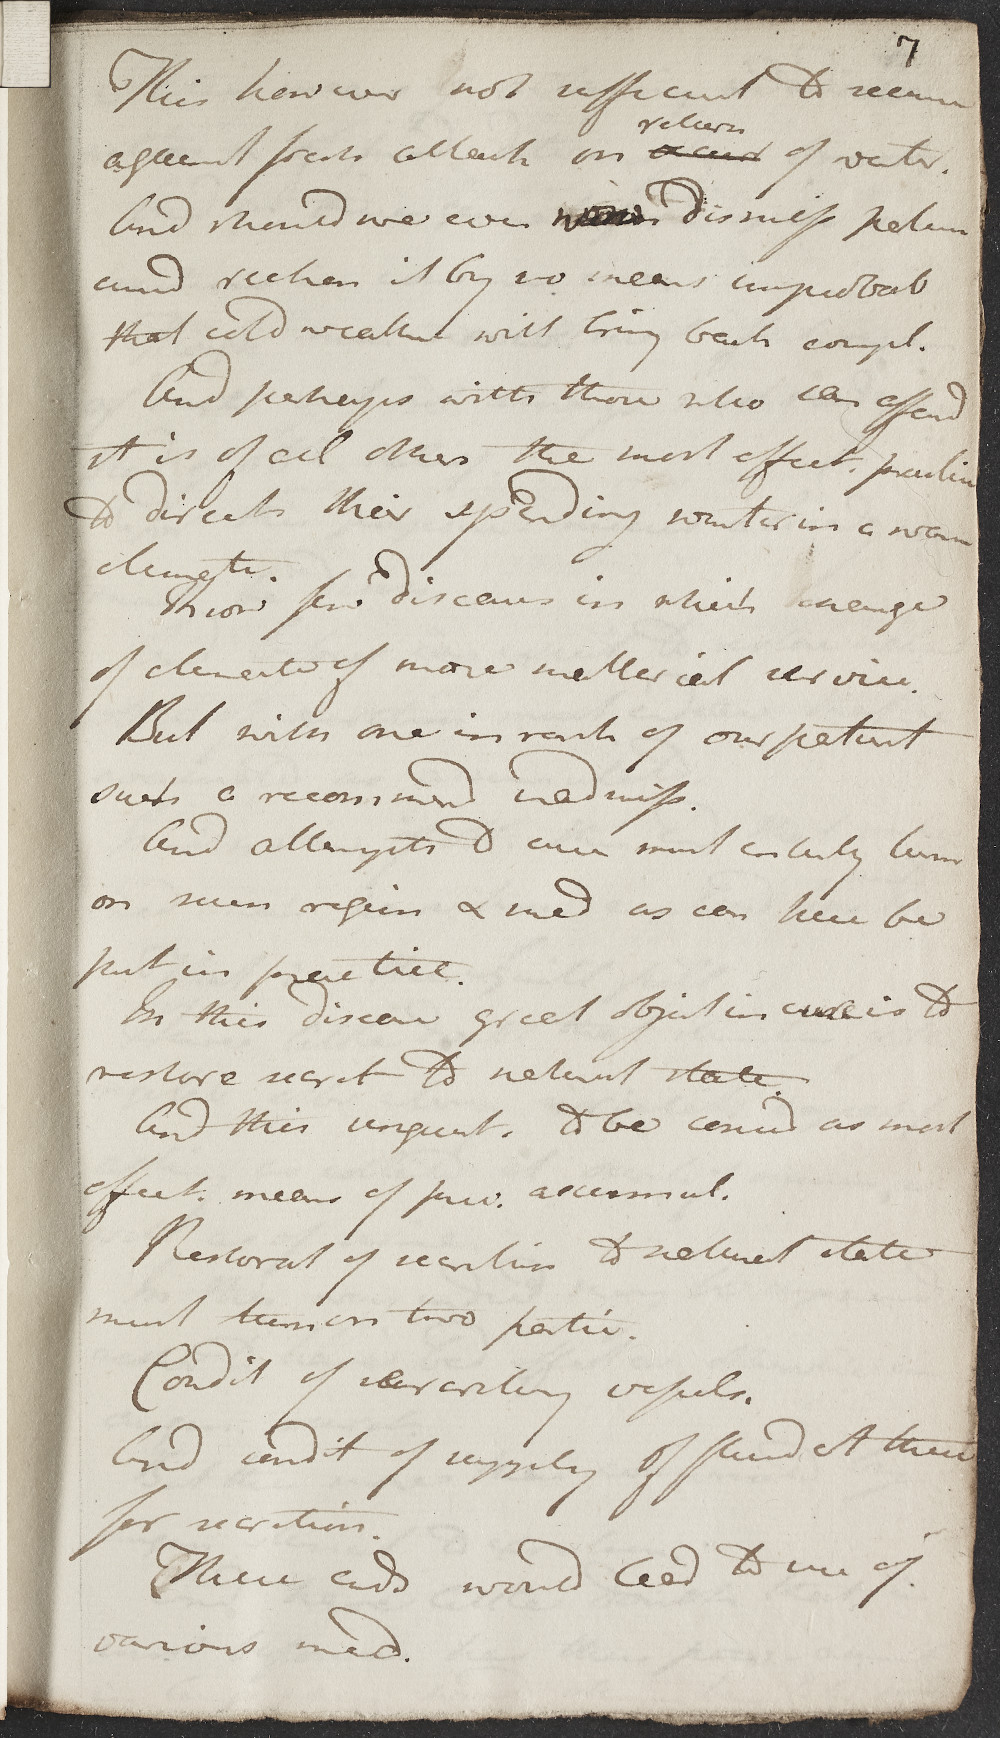 7
This however not sufficient to secure
against fresh attack on return of winter.
And should we even dismiss patien
cured reckon it by no means improbab
that cold weather will bring back compl.
And perhaps with those who can afford
it is of all others the most effect. practice
to direct their spending winter in a warm
climate.
Know few diseases in which change
of climate of more matterial service.
But with one in rank of our patient
such a recommend madness.
And attempts to cure must entirely turn
on such regim & med as can here be
put in practice.
In this disease great object in cure is to
restore secret to natural state.
And this unquest. to be consid as most
effect. means of prev. accumul.
Restorat of secretion to natural state
must turn on two partic.
Condit of secreting vessels.
And condit of supply of fluid at these
for secretion.
These ends would lead to use of
various med.